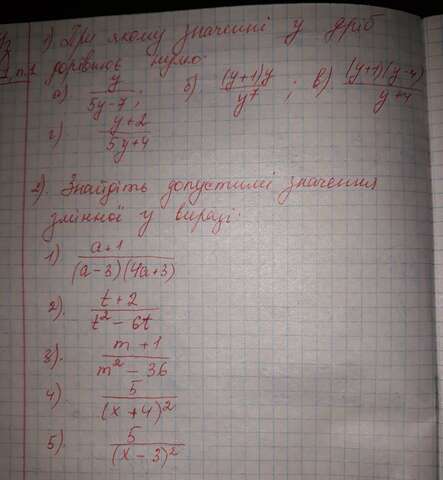 1) При якому значенні y дріб
дорівнює нулю:
а) y/(5y-7); б) (y+1)y/y⁷; в) (y+1)(y-4)/(y+4)
г) (y+2)/(5y+4)
2). Знайдіть допустимі значення
змінної у виразі:
1) (a+1)/((a-3)(4a+3))
2). (t+2)/(t²-6t)
3). (m+1)/(m²-36)
4) 5/(x+4)²
5). 5/(x-3)²